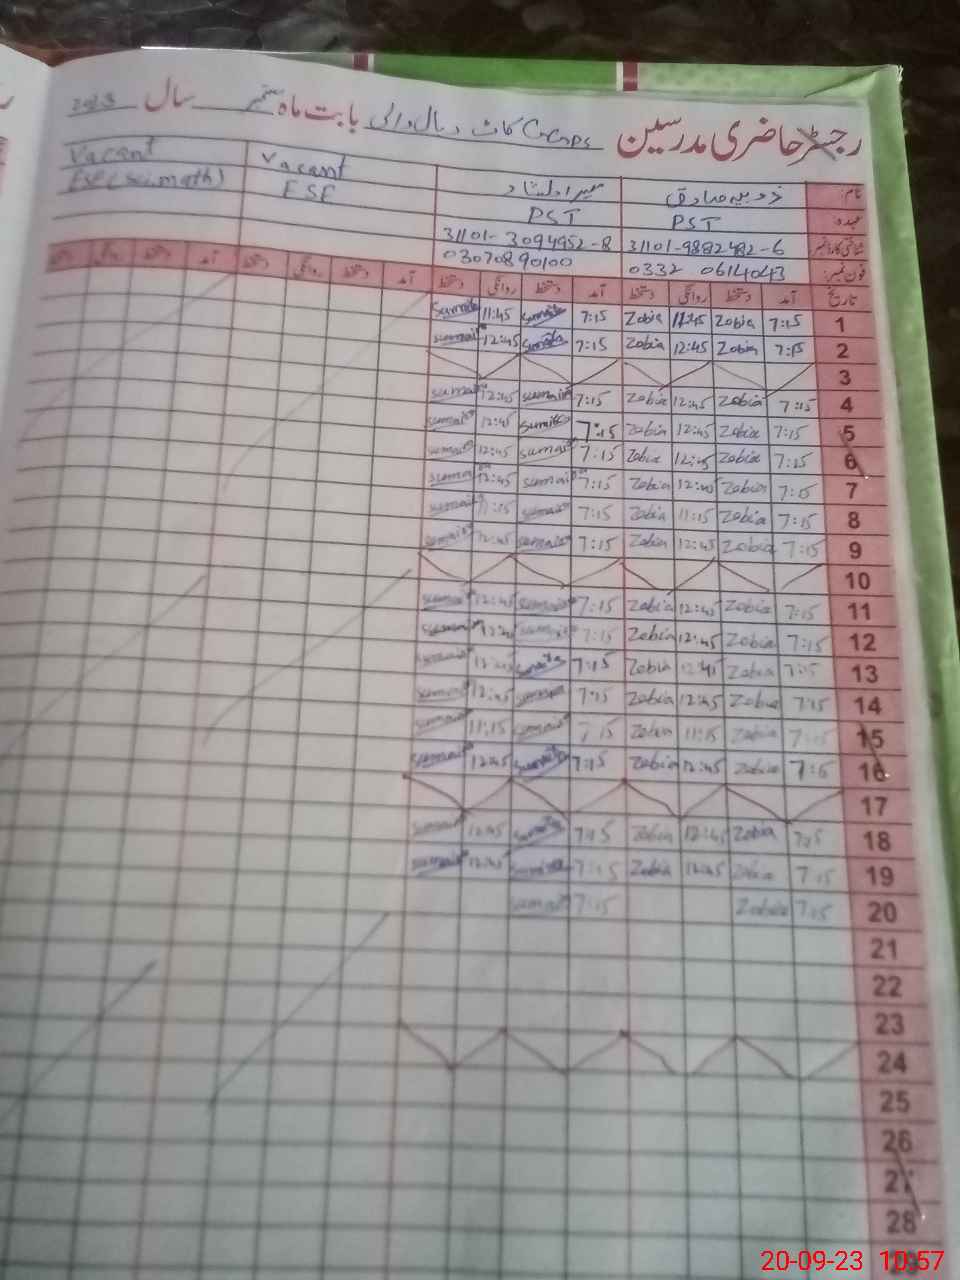 رجسٹر حاضری مدرسین GGCMPS کاٹ دہال والی بابت ماہ ستمبر سال 2023
نام: ذوبیہ صادق Vacant Vacant
عہدہ: PST PST ESE ESE (Sci.math)
شناختی کارڈ نمبر: 31101-9882482-6 31101-3094952-8
فون نمبر: 0332 0614043 03070890100
تاریخ آمد دستخط روانگی دستخط آمد دستخط روانگی دستخط آمد دستخط روانگی دستخط آمد دستخط روانگی
1 7:15 Zobia 11:45 Zobia 7:15 Sumaila 11:45 Sumaila
2 7:15 Zobia 12:45 Zobia 7:15 Sumaila 12:45 Sumaila
3
4 7:15 Zobia 12:45 Zobia 7:15 Sumaila 12:45 Sumaila
5 7:15 Zobia 12:45 Zobia 7:15 Sumaila 12:45 Sumaila
6 7:15 Zobia 12:45 Zobia 7:15 Sumaila 12:45 Sumaila
7 7:15 Zobia 12:45 Zobia 7:15 Sumaila 12:45 Sumaila
8 7:15 Zobia 11:15 Zobia 7:15 Sumaila 11:15 Sumaila
9 7:15 Zobia 12:45 Zobia 7:15 Sumaila 12:45 Sumaila
10
11 7:15 Zobia 12:45 Zobia 7:15 Sumaila 12:45 Sumaila
12 7:15 Zobia 12:45 Zobia 7:15 Sumaila 12:45 Sumaila
13 7:15 Zobia 12:45 Zobia 7:15 Sumaila 12:45 Sumaila
14 7:15 Zobia 12:45 Zobia 7:15 Sumaila 12:45 Sumaila
15 7:15 Zobia 11:15 Zobia 7:15 Sumaila 11:15 Sumaila
16 7:15 Zobia 12:45 Zobia 7:15 Sumaila 12:45 Sumaila
17
18 7:15 Zobia 12:45 Zobia 7:15 Sumaila 12:45 Sumaila
19 7:15 Zobia 12:45 Zobia 7:15 Sumaila 12:45 Sumaila
20 7:15 Zobia 7:15 Sumaila
21
22
23
24
25
26
27
28
20-09-23 10:57